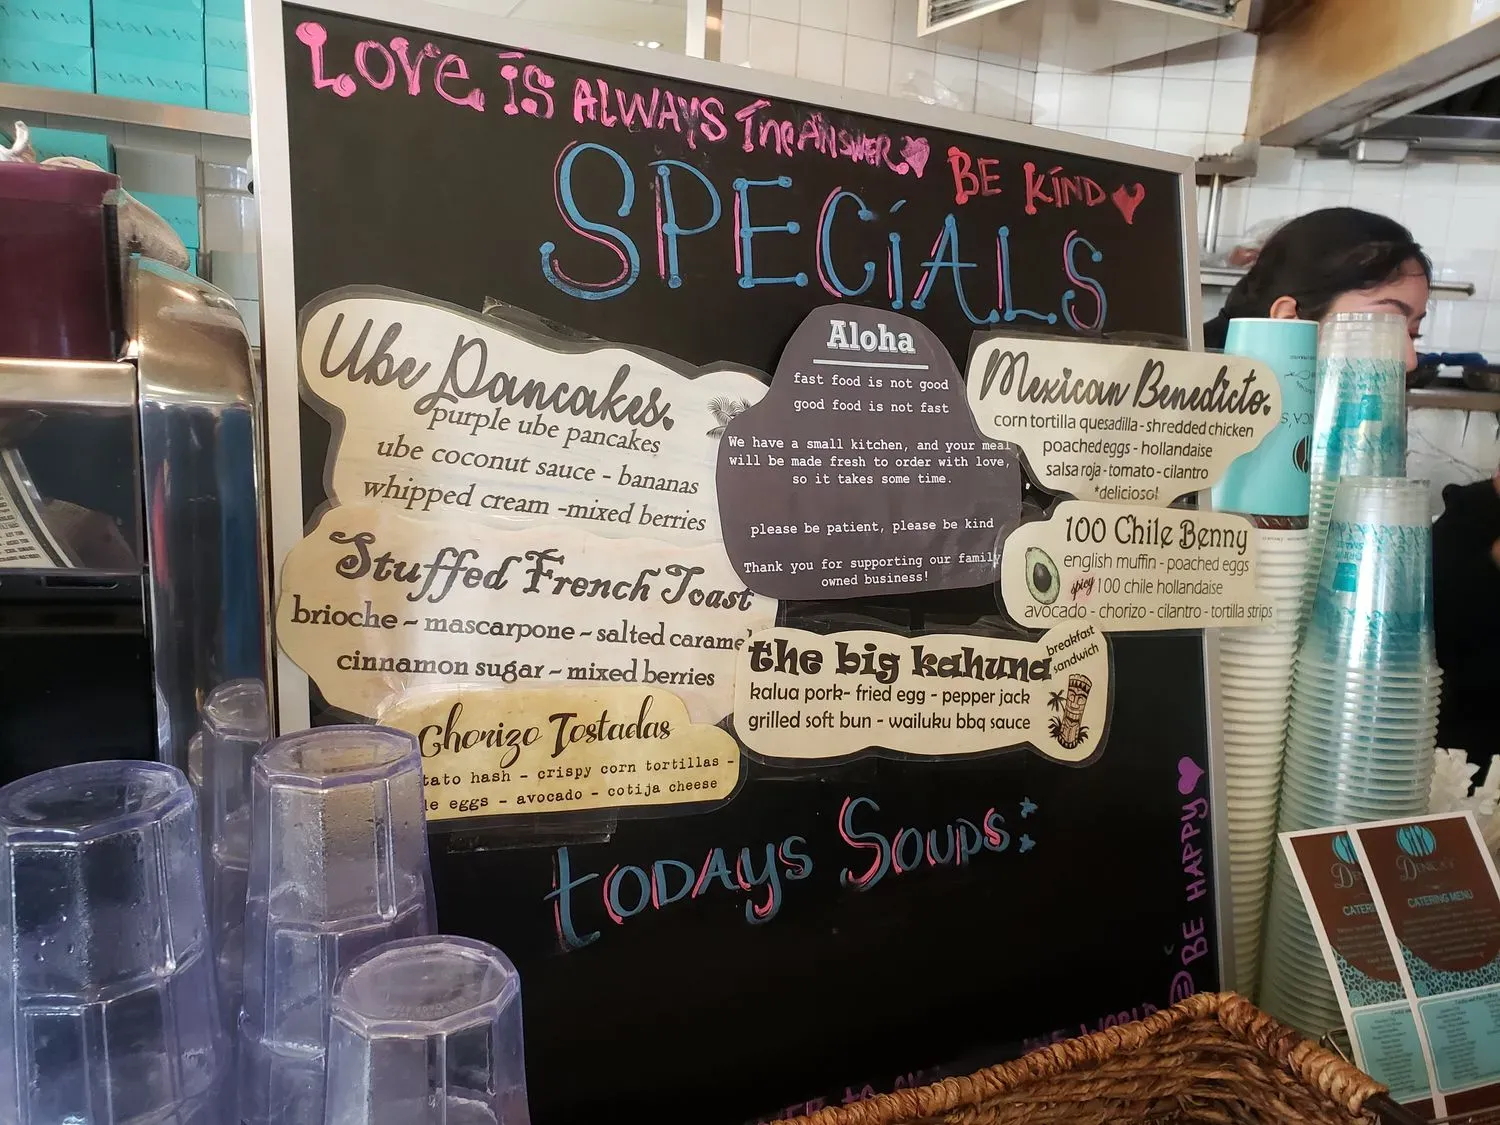 LOVE iS ALWAYS The ANSWER
BE KiND
SPECiALS
Ube Pancakes.
purple ube pancakes
ube coconut sauce - bananas
whipped cream -mixed berries
Stuffed French Toast
brioche ~ mascarpone ~ salted caramel
cinnamon sugar ~ mixed berries
Chorizo Tostadas
tato hash - crispy corn tortillas -
le eggs - avocado - cotija cheese
Aloha
fast food is not good
good food is not fast
We have a small kitchen, and your meal
will be made fresh to order with love,
so it takes some time.
please be patient, please be kind
Thank you for supporting our family
owned business!
Mexican Benedicto.
corn tortilla quesadilla - shredded chicken
poached eggs - hollandaise
salsa roja - tomato - cilantro
*delicioso!
100 Chile Benny
english muffin - poached eggs
spicy 100 chile hollandaise
avocado - chorizo - cilantro - tortilla strips
the big kahuna
breakfast
sandwich
kalua pork- fried egg - pepper jack
grilled soft bun - wailuku bbq sauce
todAys Soups:
BE HAPPY
WORLD
CATERING MENU